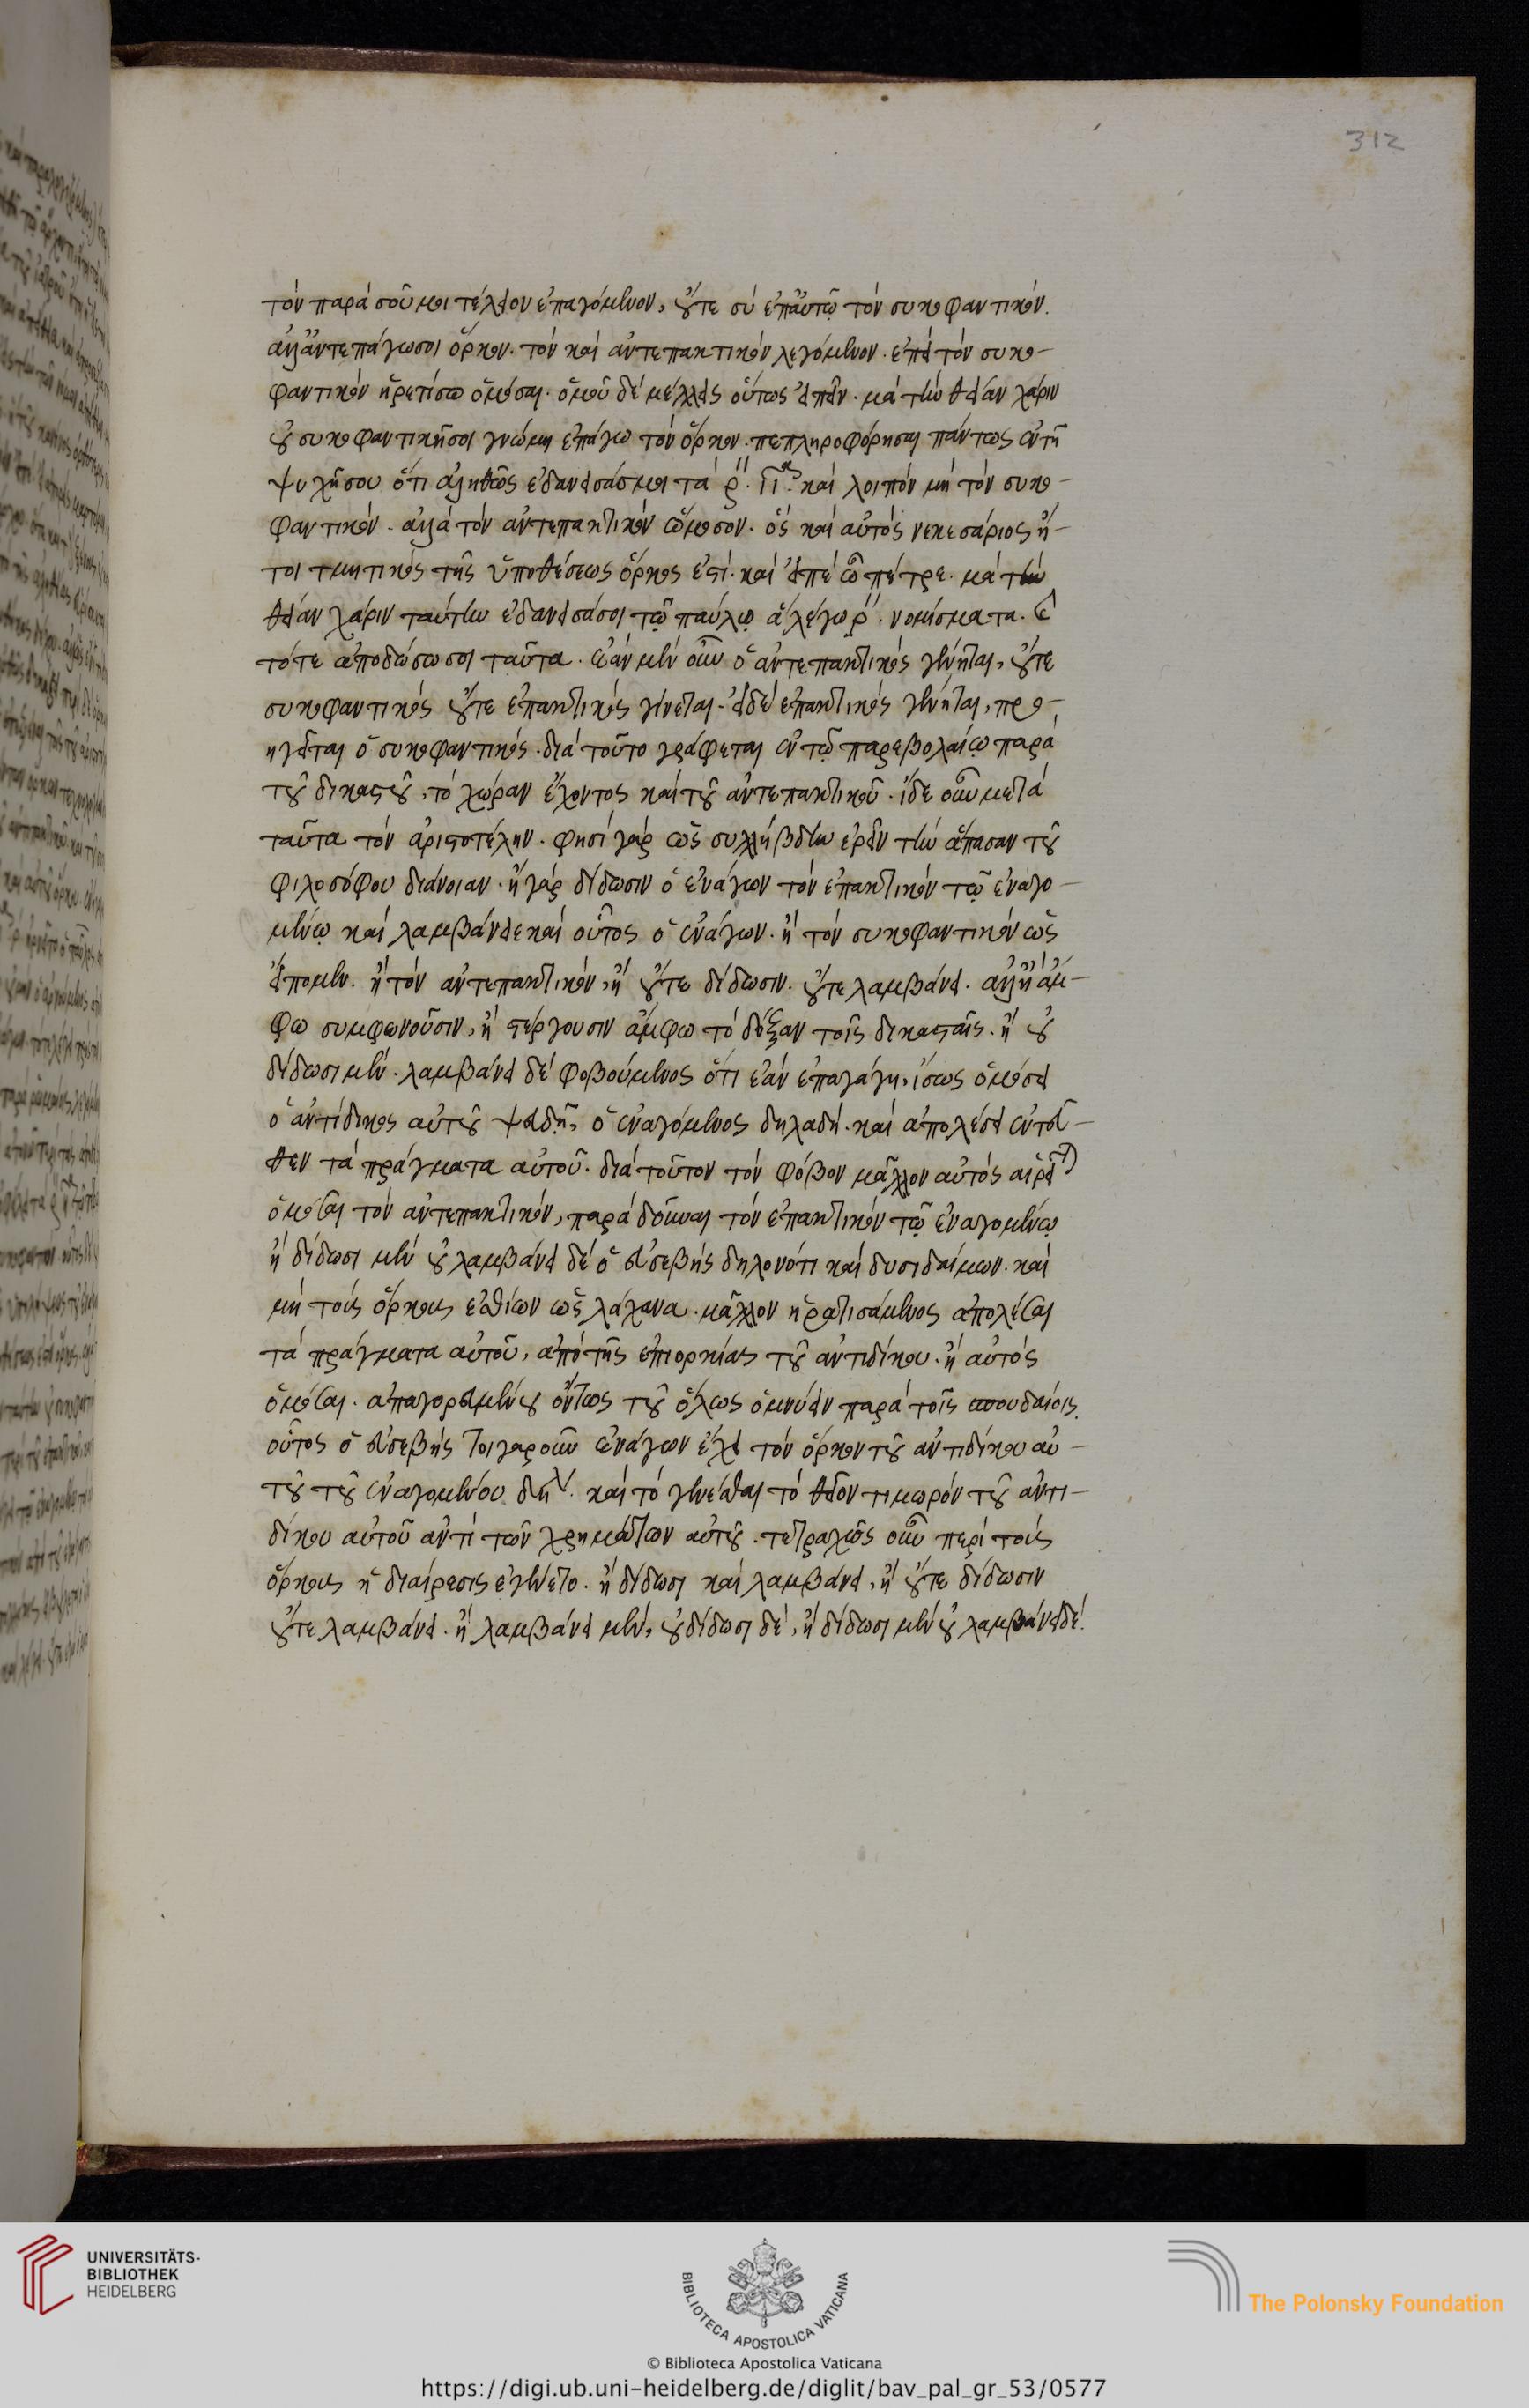 312
τὸν παρὰ σοῦ μοι τέλειον ἐπαγόμενον, οὔτε σὺ ἐπ' αὐτῷ τὸν συκοφαντικόν.
ἀλλ' ἀντεπάγωσοι ὅρκον. τὸν καὶ ἀντεπακτικὸν λεγόμενον. ἐπεὶ τὸν συκο-
φαντικὸν ᾑρετίσω ὀμόσαι. ὁμοῦ δὲ μέλλεις οὕτως εἰπεῖν. μὰ τὴν θείαν χάριν
οὐ συκοφαντικῇ σοι γνώμῃ ἐπάγω τὸν ὅρκον. πεπληροφόρησαι πάντως ἐν τῇ
ψυχῇ σου ὅτι ἀληθῶς ἐδανείσάς μοι τὰ ρ. καὶ λοιπὸν μὴ τὸν συκο-
φαντικὸν. ἀλλὰ τὸν ἀντεπακτικὸν ὤμοσον. ὃς καὶ αὐτὸς νεκεσάριος ἤ-
τοι τμητικὸς τῆς ὑποθέσεως ὅρκος ἐστί. καὶ εἰπὲ ὦ πέτρε. μὰ τὴν
θείαν χάριν ταύτην ἐδάνεισά σοι τῷ παύλῳ ἃ λέγω ρ νομίσματα. καὶ
τότε ἀποδώσω σοι ταῦτα. ἐὰν μὲν οὖν ὁ ἀντεπακτικὸς γένηται, οὔτε
συκοφαντικὸς οὔτε ἐπακτικὸς γίνεται. εἰ δὲ ἐπακτικὸς γένηται, προ-
ηγεῖται ὁ συκοφαντικός. διὰ τοῦτο γράφεται ἐν τῷ παρεβολαίῳ παρὰ
τοῦ δικαστοῦ, τὸ χώραν ἔχοντος καὶ τοῦ ἀντεπακτικοῦ. ἴδε οὖν μετὰ
ταῦτα τὸν ἀριστοτέλην. φησὶ γὰρ ὡς συλλήβδην ἐρεῖν τὴν ἅπασαν τοῦ
φιλοσόφου διάνοιαν. ἢ γὰρ δίδωσιν ὁ ἐνάγων τὸν ἐπακτικὸν τῷ ἐναγο-
μένῳ καὶ λαμβάνει καὶ οὗτος ὁ ἐνάγων. ἢ τὸν συκοφαντικὸν ὡς
εἴπομεν. ἢ τὸν ἀντεπακτικὸν, ἢ οὔτε δίδωσιν. οὔτε λαμβάνει. ἀλλ' ἢ ἄμ-
φω συμφωνοῦσιν, ἢ στέργουσιν ἄμφω τὸ δόξαν τοῖς δικασταῖς. ἢ οὐ
δίδωσι μὲν. λαμβάνει δὲ φοβούμενος ὅτι ἐὰν ἐπαγάγῃ, ἴσως ὀμόσει
ὁ ἀντίδικος αὐτοῦ ψευδῆ, ὁ ἐναγόμενος δηλαδή. καὶ ἀπολέσει ἐντεῦ-
θεν τὰ πράγματα αὐτοῦ. διὰ τοῦτον τὸν φόβον μᾶλλον αὐτὸς αἱρεῖται
ὀμόσαι τὸν ἀντεπακτικὸν, παρὰ δοῦναι τὸν ἐπακτικὸν τῷ ἐναγομένῳ
ἢ δίδωσι μὲν οὐ λαμβάνει δὲ ὁ εὐσεβὴς δηλονότι καὶ δυσιδαίμων. καὶ
μὴ τοὺς ὅρκους ἐσθίων ὡς λάχανα. μᾶλλον ᾑρετισάμενος ἀπολέσαι
τὰ πράγματα αὐτοῦ, ἀπὸ τῆς ἐπιορκίας τοῦ ἀντιδίκου. ἢ αὐτὸς
ὀμόσαι. ἀπαγορευμένου ὄντως τοῦ ὅλως ὀμνύειν παρὰ τοῖς σπουδαίοις.
οὗτος ὁ εὐσεβὴς τοιγαροῦν ἐνάγων ἔχει τὸν ὅρκον τοῦ ἀντιδίκου αὐ-
τοῦ τοῦ ἐναγομένου δη. καὶ τὸ γενέσθαι τὸ θεῖον τιμωρὸν τοῦ ἀντι-
δίκου αὐτοῦ ἀντὶ τῶν χρημάτων αὐτοῦ. τετραχῶς οὖν περὶ τοὺς
ὅρκους ἡ διαίρεσις ἐγένετο. ἢ δίδωσι καὶ λαμβάνει, ἢ οὔτε δίδωσιν
οὔτε λαμβάνει. ἢ λαμβάνει μὲν, οὐ δίδωσι δέ, ἢ δίδωσι μὲν οὐ λαμβάνει δέ.
UNIVERSITÄTS-
BIBLIOTHEK
HEIDELBERG
BIBLIOTECA APOSTOLICA VATICANA
© Biblioteca Apostolica Vaticana
The Polonsky Foundation
https://digi.ub.uni-heidelberg.de/diglit/bav_pal_gr_53/0577